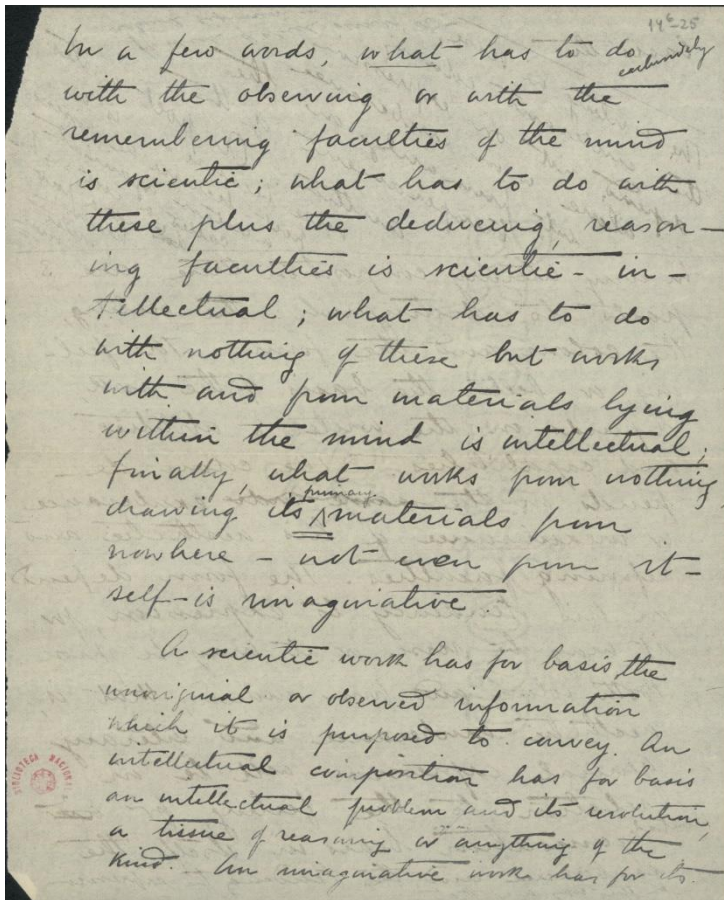 14 6-25
In a few words, what has to do
exclusively
with the observing or with the
remembering faculties of the mind
is scientic; what has to do with
these plus the deducing, reason-
ing faculties is scientic - in-
tellectual; what has to do
with nothing of these but works
with and from materials lying
within the mind is intellectual;
finally, what works from nothing,
primary
drawing its materials from
nowhere - not even from it-
self - is imaginative.
A scientic work has for basis the
unoriginal or observed information
which it is purposed to convey. An
intellectual composition has for basis
an intellectual problem and its resolution,
a tissue of reasoning or anything of the
kind. An imaginative work has for its
BIBLIOTECA NACIONAL